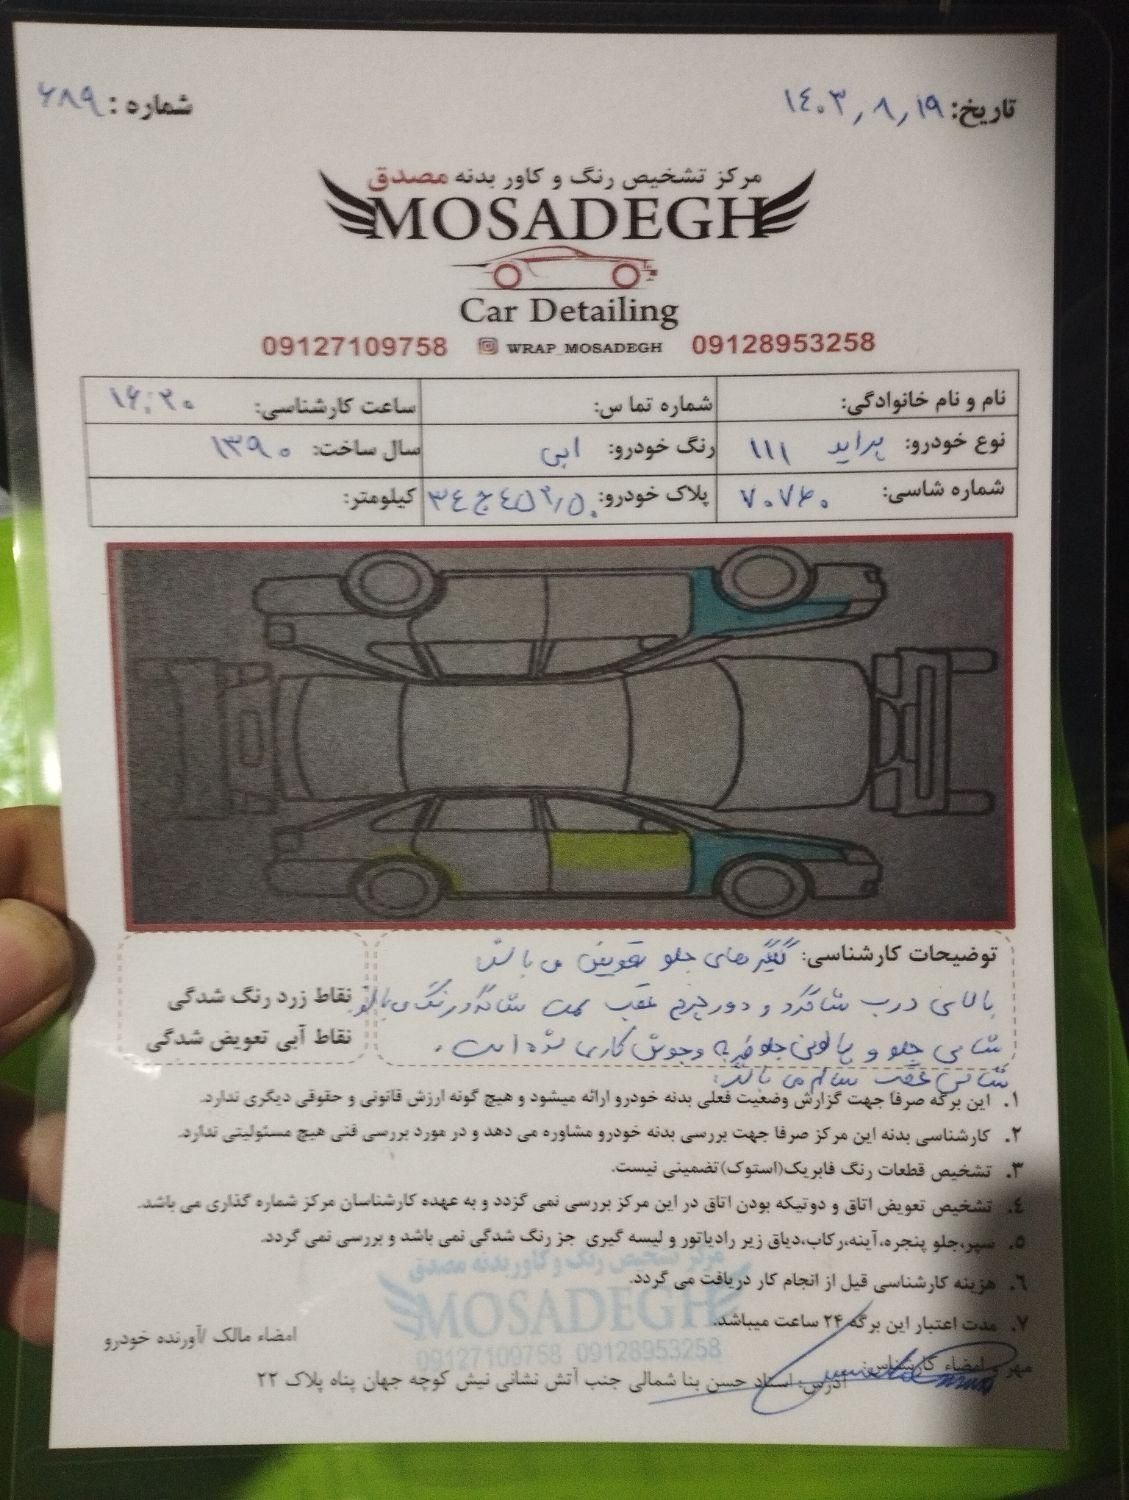 تاریخ: ۱۴۰۳٫۸٫۱۹
شماره: ۶۸۹
مرکز تشخیص رنگ و کاور بدنه مصدق
MOSADEGH
Car Detailing
09127109758 WRAP_MOSADEGH 09128953258
نام و نام خانوادگی: شماره تماس: ساعت کارشناسی: ۱۶:۲۰
نوع خودرو: پراید ۱۱۱ رنگ خودرو: ابی سال ساخت: ۱۳۹۰
شماره شاسی: ۷۰۷۶۰ پلاک خودرو: کیلومتر:
توضیحات کارشناسی: گلگیرهای جلو تعویض می باشد
بالای درب شاگرد و دور چرخ عقب سمت شاگرد رنگ می باشد
شاسی جلو و جلو ضربه و جوش کاری شده است.
شاسی عقب سالم می باشد.
نقاط زرد رنگ شدگی
نقاط آبی تعویض شدگی
۱. این برگه صرفا جهت گزارش وضعیت فعلی بدنه خودرو ارائه میشود و هیچ گونه ارزش قانونی و حقوقی دیگری ندارد.
۲. کارشناسی بدنه این مرکز صرفا جهت بررسی بدنه خودرو مشاوره می دهد و در مورد بررسی فنی هیچ مسئولیتی ندارد.
۳. تشخیص قطعات رنگ فابریک(استوک)تضمینی نیست.
٤. تشخیص تعویض اتاق و دوتیکه بودن اتاق در این مرکز بررسی نمی گردد و به عهده کارشناسان مرکز شماره گذاری می باشد.
۵. سپر،جلو پنجره،آینه،رکاب،دیاق زیر رادیاتور و لیسه گیری جز رنگ شدگی نمی باشد و بررسی نمی گردد.
۶. هزینه کارشناسی قبل از انجام کار دریافت می گردد.
۷. مدت اعتبار این برگه ۲۴ ساعت میباشد.
مرکز تشخیص رنگ و کاور بدنه مصدق
MOSADEGH
09127109758 09128953258
امضاء مالک /آورنده خودرو
مهر و امضاء کارشناس:
آدرس: استاد حسن بنا شمالی جنب آتش نشانی نبش کوچه جهان پناه پلاک ۲۲